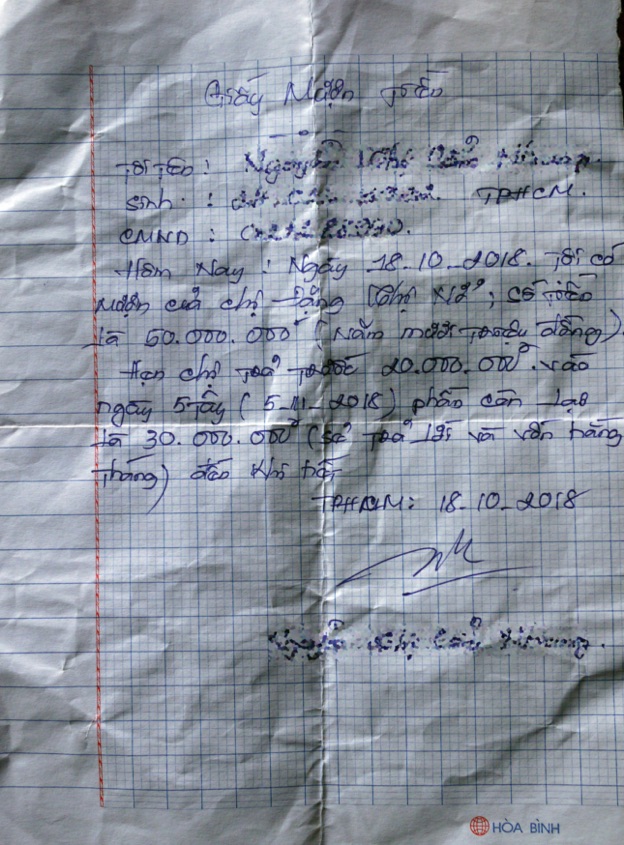 Giấy Mượn Tiền
Tôi Tên : Nguyễn Thị Cẩm
Sinh : TPHCM.
CMND :
Hôm Nay : Ngày 18.10_2018. Tôi có
mượn của chị Tằng Thị Nữ, số tiền
là 50.000.000đ (Năm mươi triệu đồng).
Hẹn chị trả trước 20.000.000đ. vào
ngày 5 tây ( 5_11_2018) phần còn lại
là 30.000.000đ (sẻ trả lời và vốn hằng
tháng) đến khi hết
TPHCM: 18_10_2018
Nguyễn Thị Cẩm
HÒA BÌNH